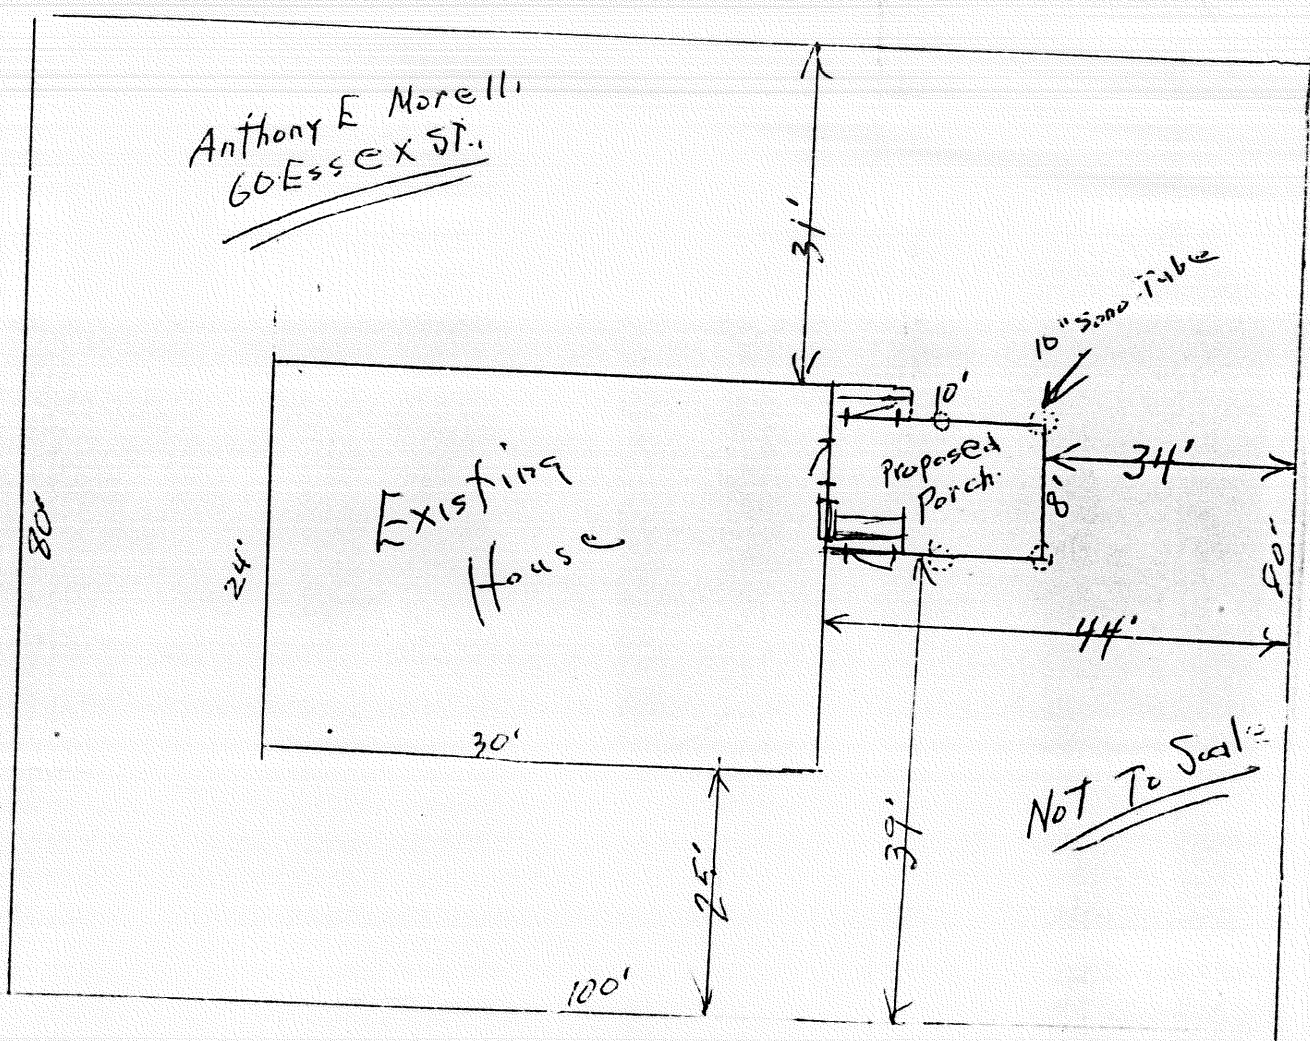 Anthony E Morelli
60 Essex ST.,
31'
10" Sono Tube
10'
Proposed
Porch.
34'
8'
Existing
House
80'
24'
44'
30'
Not To Scale
25'
39'
100'